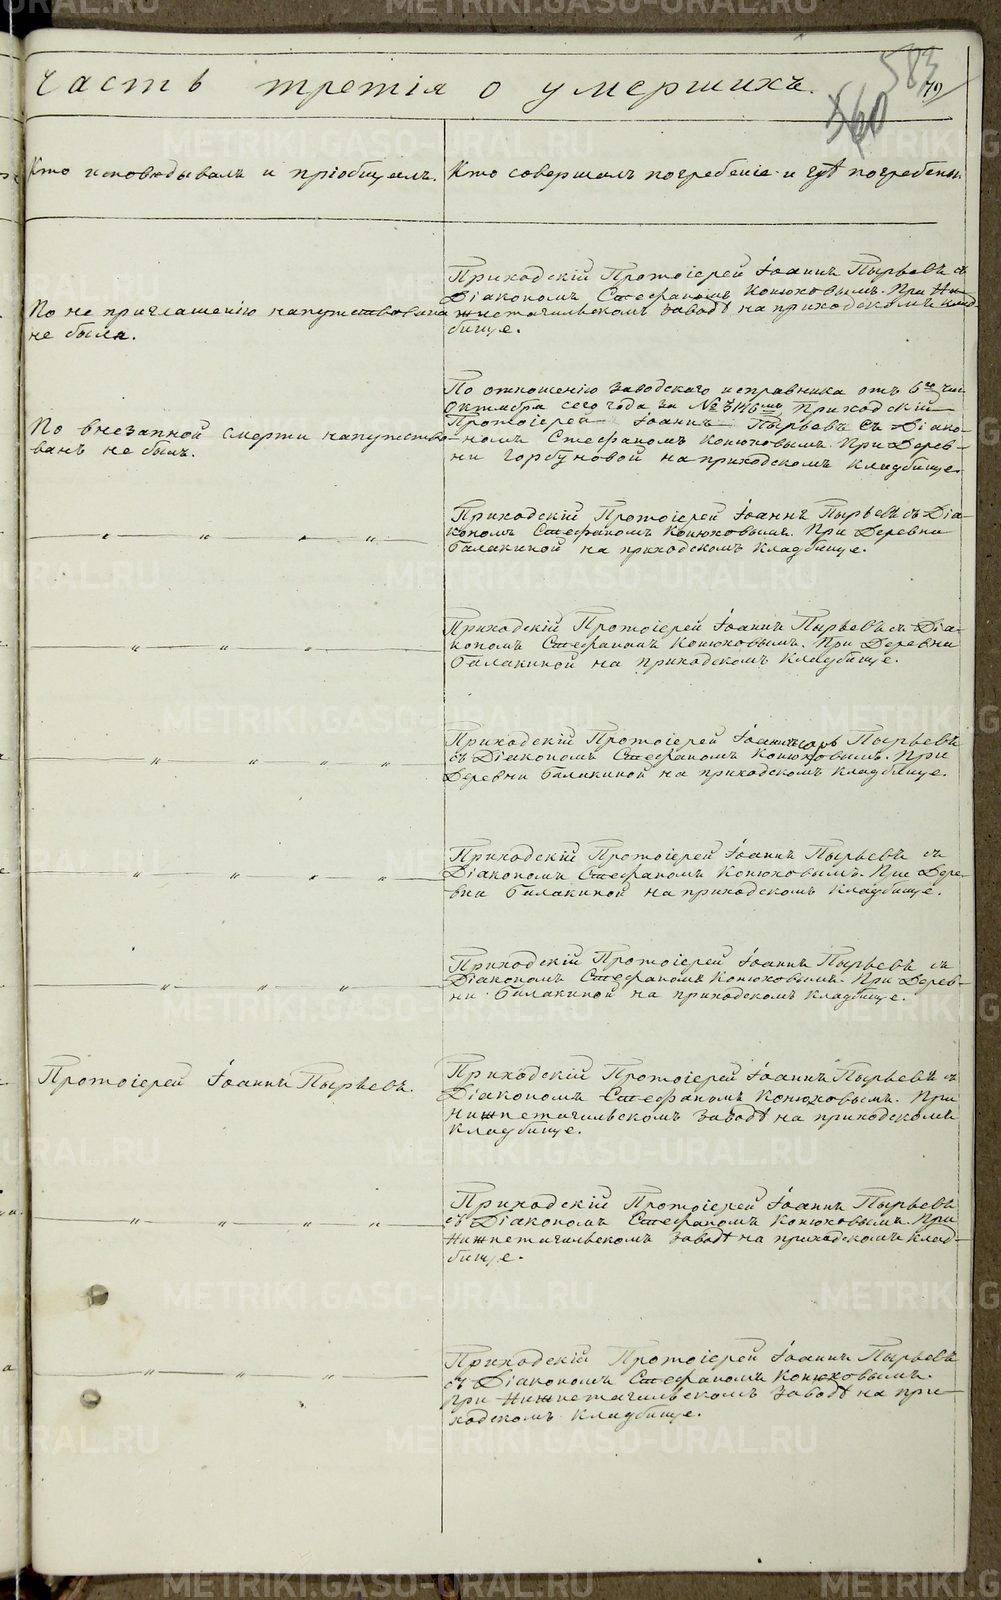 часть третія о умершихъ.
583
560
79
Кто исповѣдывалъ и пріобщалъ.
Кто совершалъ погребеніе и гдѣ погребены.
По не приглашенію напутствована
не была.
Приходскій Протоіерей Іоаннъ Пырьевъ съ
Діакономъ Стефаномъ Конюховымъ. При Ни-
жнетагильскомъ заводѣ на приходскомъ клад-
бище.
По внезапной смерти напутство-
ванъ не былъ.
По отношенію заводскаго исправника отъ 6го чис.
Октября сего года за № 3146мъ Приходскій
Протоіерей Іоаннъ Пырьевъ съ Діако-
номъ Стефаномъ Конюховымъ. При Дерев-
ни Горбуновой на приходскомъ кладбище.
„ „ „ „
Приходскій Протоіерей Іоаннъ Пырьевъ съ Діа-
кономъ Стефаномъ Конюховымъ. При Деревни
Балакиной на приходскомъ кладбище.
„ „ „
Приходскій Протоіерей Іоаннъ Пырьевъ съ Діа-
кономъ Стефаномъ Конюховымъ. При Деревни
Балакиной на приходскомъ кладбище.
„ „ „ „
Приходскій Протоіерей Іоаннъ Пырьевъ
съ Діакономъ Стефаномъ Конюховымъ. При
Деревни Балакиной на приходскомъ кладбище.
„ „ „ „
Приходскій Протоіерей Іоаннъ Пырьевъ съ
Діакономъ Стефаномъ Конюховымъ. При Дере-
вни Балакиной на приходскомъ кладбище.
„ „ „
Приходскій Протоіерей Іоаннъ Пырьевъ съ
Діакономъ Стефаномъ Конюховымъ. При Дерев-
ни Балакиной на приходскомъ кладбище.
Протоіерей Іоаннъ Пырьевъ.
Приходскій Протоіерей Іоаннъ Пырьевъ съ
Діакономъ Стефаномъ Конюховымъ. При
Нижнетагильскомъ заводѣ на приходскомъ
кладбище.
„ „ „ „
Приходскій Протоіерей Іоаннъ Пырьевъ
съ Діакономъ Стефаномъ Конюховымъ. При
Нижнетагильскомъ заводѣ на приходскомъ клад-
бище.
„ „ „
Приходскій Протоіерей Іоаннъ Пырьевъ
съ Діакономъ Стефаномъ Конюховымъ.
При Нижнетагильскомъ заводѣ на при-
ходскомъ кладбище.
METRIKI.GASO-URAL.RU